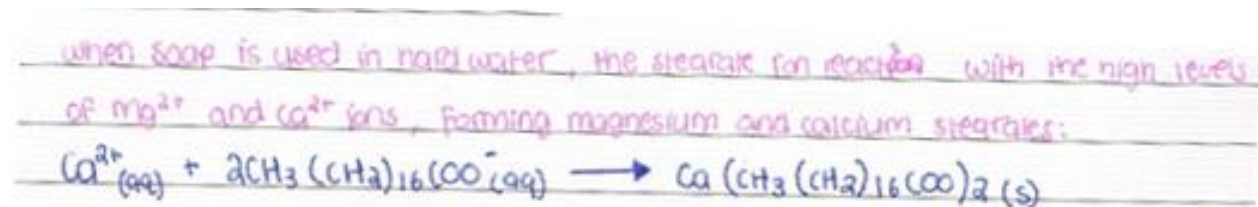 when soap is used in hard water, the stearate ion reaction with the high levels
of Mg²⁺ and Ca²⁺ ions, forming magnesium and calcium stearates:
Ca²⁺(aq) + 2CH₃(CH₂)₁₆COO⁻(aq) → Ca(CH₃(CH₂)₁₆COO)₂(s)